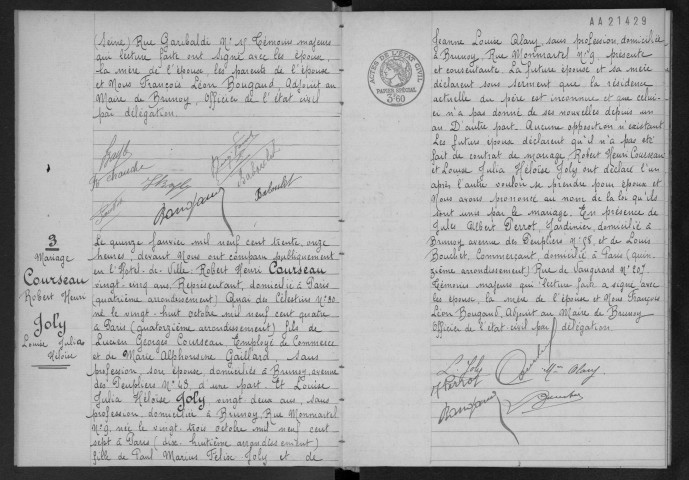 (Seine) Rue Garibaldi N° 15 Témoins majeurs
qui lecture faite ont signé avec les époux,
la mère de l'épouse les parents de l'épouse
et Nous François Léon Bougaud, Adjoint au
Maire de Brunoy, Officier de l'état civil
par délégation.
3
Mariage
Courseau
Robert Henri
&
Joly
Louise Julia
Héloïse
Le quinze Janvier mil neuf cent trente, onze
heures, devant Nous ont comparu publiquement
en l'Hôtel-de-Ville: Robert Henri Courseau
vingt cinq ans, Représentant, domicilié à Paris
(quatrième arrondissement) Quai des Célestins N° 30
né le vingt-huit octobre mil neuf cent quatre
à Paris (quatorzième arrondissement) fils de
Lucien Georges Courseau Employé de Commerce
et de Marie Alphonsine Gaillard, sans
profession, son épouse, domiciliés à Brunoy, avenue
des Peupliers N° 43, d'une part. Et Louise
Julia Héloïse Joly vingt deux ans, sans
profession, domiciliée à Brunoy, Rue Monmartel
N° 9, née le vingt trois octobre mil neuf cent
sept à Paris (dix-huitième arrondissement)
fille de Paul Marius Félix Joly et de
AA21429
ACTES DE L'ÉTAT CIVIL
PAPIER SPÉCIAL
3f60
Jeanne Louise Olary, sans profession, domiciliée
à Brunoy, Rue Monmartel N° 9, présente
et consentante. La future épouse et sa mère
déclarent sous serment que la résidence
actuelle du père est inconnue et que celui-
ci n'a pas donné de ses nouvelles depuis un
an. D'autre part. Aucune opposition n'existant
Les futurs époux déclarent qu'il n'a pas été
fait de contrat de mariage Robert Henri Courseau
et Louise Julia Héloïse Joly ont déclaré l'un
après l'autre vouloir se prendre pour époux et
Nous avons prononcé au nom de la loi qu'ils
sont unis par le mariage. En présence de
Jules Albert Perrot, Jardinier, domicilié à
Brunoy avenue des Peupliers N° 58, et de Louis
Bouchet, Commerçant, domicilié à Paris (quin-
zième arrondissement) Rue de Vaugirard N° 207.
Témoins majeurs qui lecture faite a signé avec
les époux, la mère de l'épouse et Nous François
Léon Bougaud, Adjoint au Maire de Brunoy
Officier de l'état civil par délégation.
L. Joly
Perrot
Olary
Bougaud